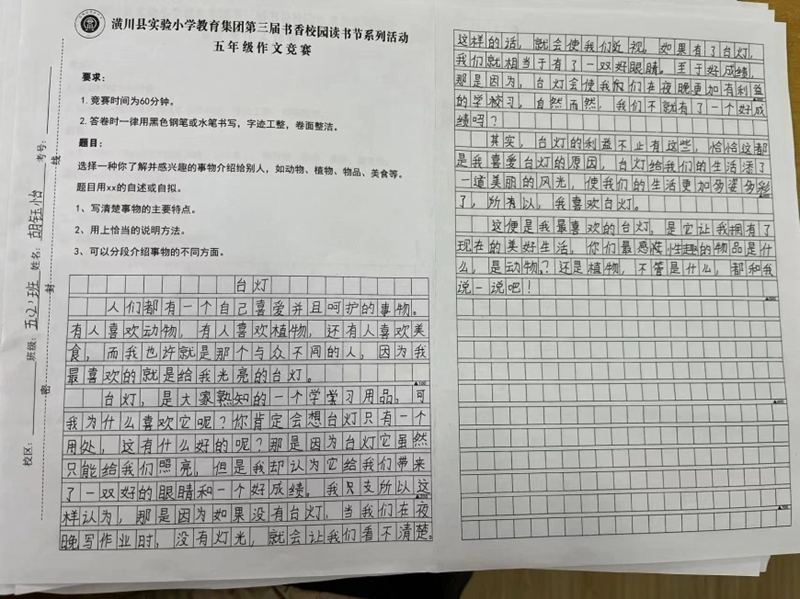 潢川县实验小学教育集团第三届书香校园读书节系列活动
五年级作文竞赛
要求：
1. 竞赛时间为60分钟。
2. 答卷时一律用黑色钢笔或水笔书写，字迹工整，卷面整洁。
题目：
选择一种你了解并感兴趣的事物介绍给别人，如动物、植物、物品、美食等。
题目用xx的自述或自拟。
1、写清楚事物的主要特点。
2、用上恰当的说明方法。
3、可以分段介绍事物的不同方面。
校区：
班级：
姓名：
考号：
密
封
线
台灯
人们都有一个自己喜爱并且呵护的事物。
有人喜欢动物，有人喜欢植物，还有人喜欢美
食，而我也许就是那个与众不同的人，因为我
最喜欢的就是给我光亮的台灯。
台灯，是大家熟知的一个学学习用品，可
我为什么喜欢它呢？你肯定会想台灯只有一个
用处，这有什么好的呢？那是因为台灯它虽然
只能给我们照亮，但是我却认为它给我们带来
了一双好的眼睛和一个好成绩。我只支所以这
样认为，那是因为如果没有台灯，当我们在夜
晚写作业时，没有灯光，就会让我们看不清楚。
这样的话，就会使我们近视。如果有了台灯，
我们就相当于有了一双好眼睛。至于好成绩，
那是因为，台灯会使我们在夜晚更加有利益
的学校习。自然而然，我们不就有了一个好成
绩吗？
其实，台灯的利益不止有这些，恰恰这都
是我喜爱台灯的原因，台灯给我们的生活添了
一道美丽的风光，使我们的生活更加多姿多彩
了，所有以，我喜欢台灯。
这便是我最喜欢的台灯，是它让我拥有了
现在的美好生活，你们最感性趣的物品是什
么，是动物？还是植物，不管是什么，都和我
说一说吧！